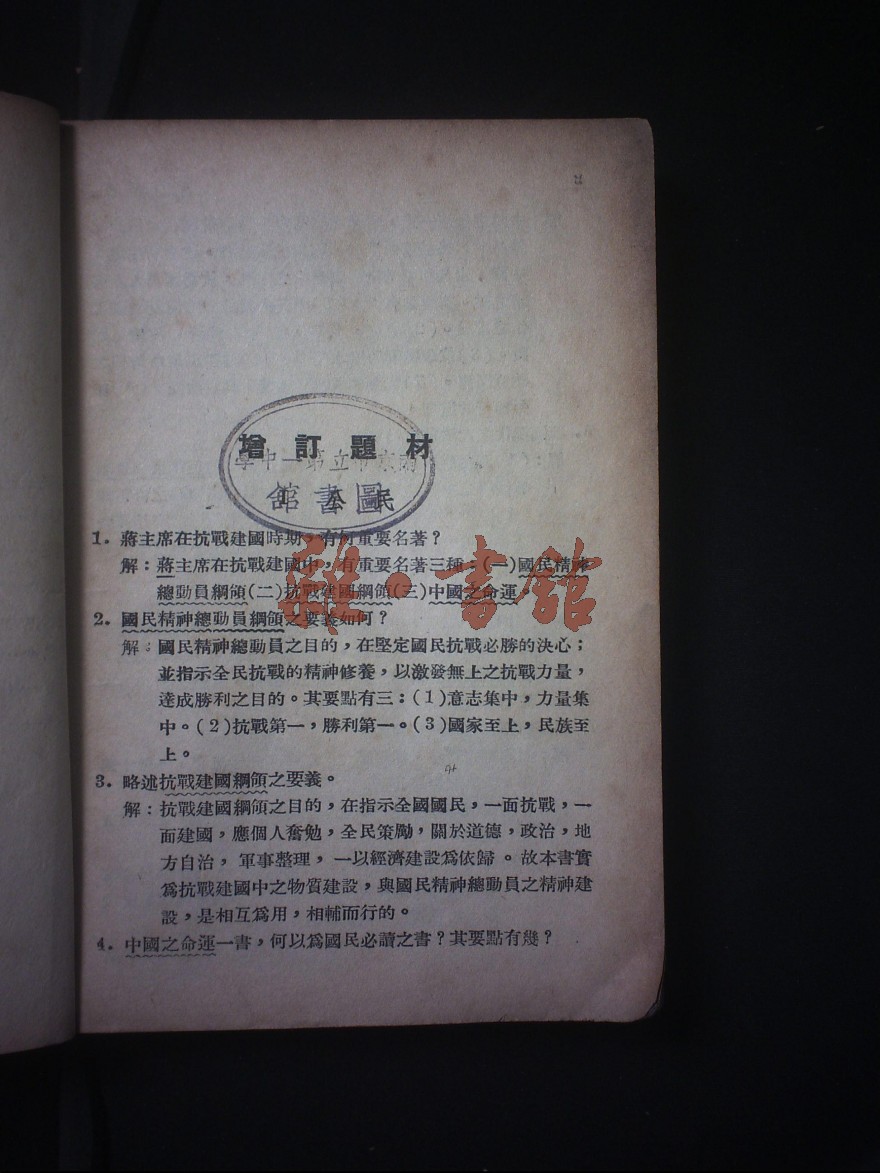 增訂題材
南京市立第一中學
圖書館
公民
1. 蔣主席在抗戰建國時期,有何重要名著?
解:蔣主席在抗戰建國中,有重要名著三種:(一)國民精神
總動員綱領(二)抗戰建國綱領(三)中國之命運。
2. 國民精神總動員綱領之要義如何?
解:國民精神總動員之目的,在堅定國民抗戰必勝的決心;
並指示全民抗戰的精神修養,以激發無上之抗戰力量,
達成勝利之目的。其要點有三:(1)意志集中,力量集
中。(2)抗戰第一,勝利第一。(3)國家至上,民族至
上。
3. 略述抗戰建國綱領之要義。
解:抗戰建國綱領之目的,在指示全國國民,一面抗戰,一
面建國,應個人奮勉,全民策勵,關於道德,政治,地
方自治,軍事整理,一以經濟建設爲依歸。故本書實
爲抗戰建國中之物質建設,與國民精神總動員之精神建
設,是相互爲用,相輔而行的。
4. 中國之命運一書,何以爲國民必讀之書?其要點有幾?
雜·書館